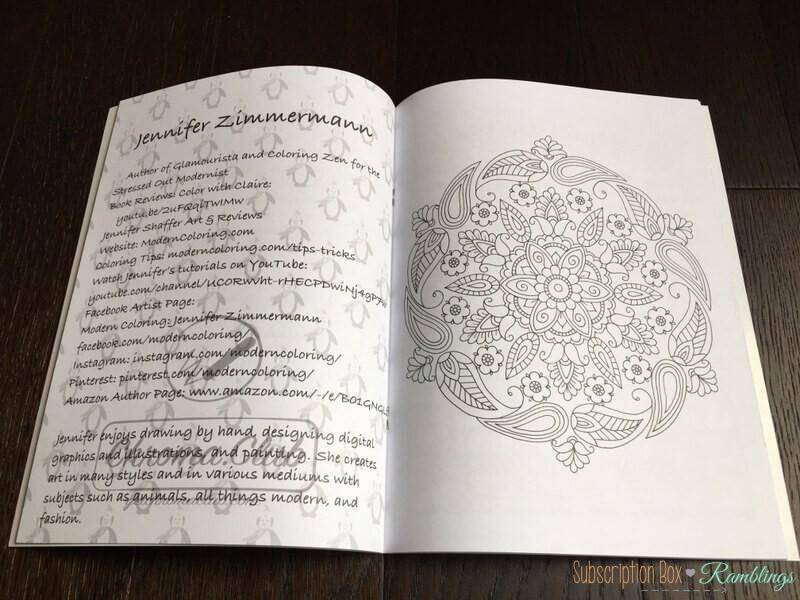 Jennifer Zimmermann
Author of Glamourista and Coloring Zen for the
Stressed Out Modernist
Book Reviews: Color with Claire:
youtu.be/2uFQqlTWIMw
Jennifer Shaffer Art & Reviews
Website: ModernColoring.com
Coloring Tips: moderncoloring.com/tips-tricks
Watch Jennifer's tutorials on YouTube:
Facebook Artist Page:
Modern Coloring: Jennifer Zimmermann
facebook.com/moderncoloring/
Instagram: instagram.com/moderncoloring/
Pinterest: pinterest.com/moderncoloring/
Amazon Author Page: www.amazon.com/-/e/B01GNQL
Jennifer enjoys drawing by hand, designing digital
graphics and illustrations, and painting. She creates
art in many styles and in various mediums with
subjects such as animals, all things modern, and
fashion.
Subscription Box Ramblings